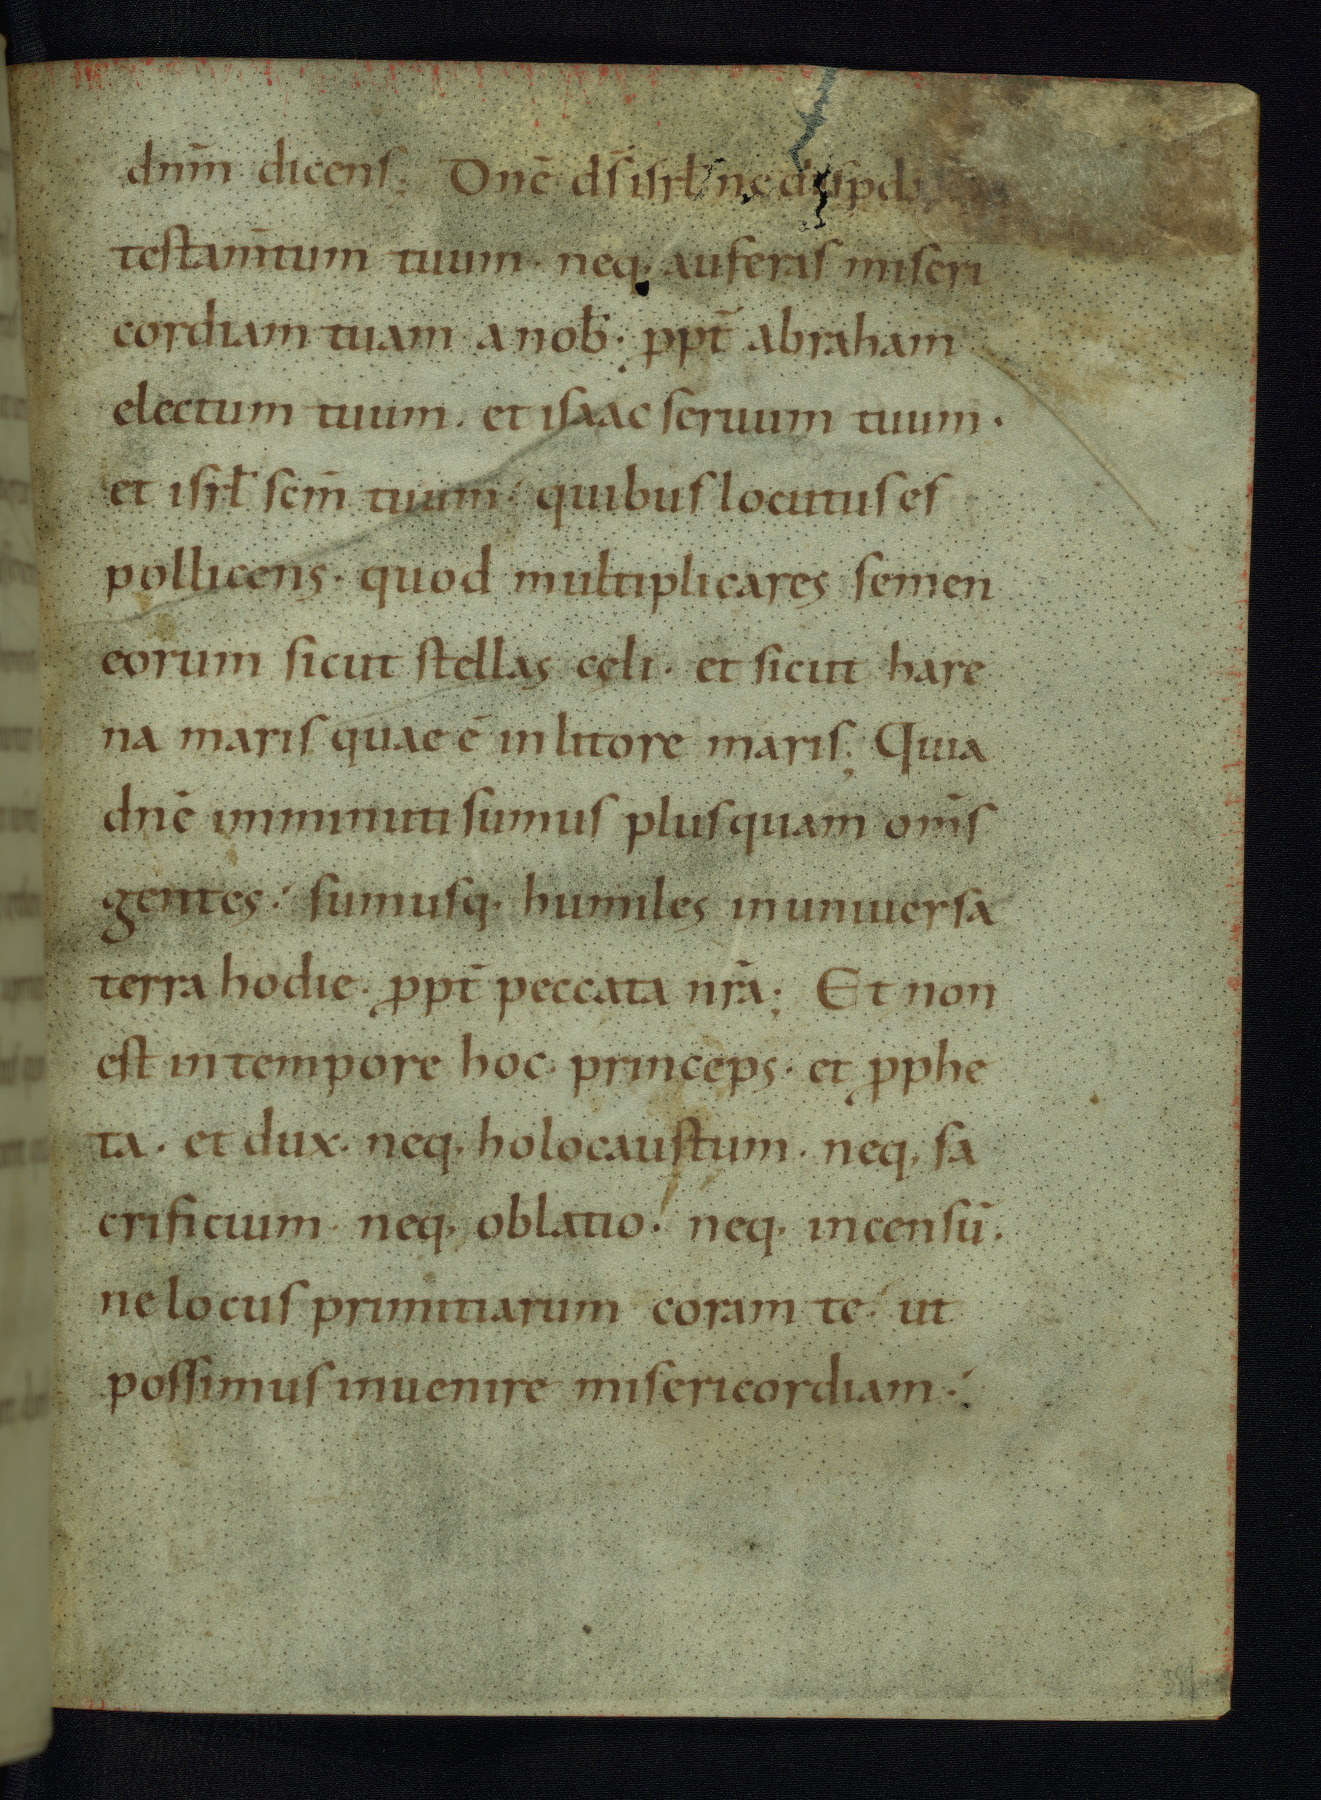 dnm̄ dicens. Dnē ds̄ isrł ne
testam̄tum tuum · neq; auferas miseri
cordiam tuam a nob̄ · ꝓpt̄ abraham
electum tuum · et isaac seruum tuum ·
et isrł scm̄ tuum · quibus locutus es
pollicens · quod multiplicares semen
eorum sicut stellas cęli · et sicut hare
na maris quae ē in litore maris; Quia
dnē imminuti sumus plus quam om̄s
gentes · sumusq; humiles in uniuersa
terra hodie · ꝓpt̄ peccata nrā; Et non
est in tempore hoc princeps · et ꝓphe
ta · et dux · neq; holocaustum · neq; sa
crificium · neq; oblatio · neq; incensū ·
ne locus primitiarum coram te · ut
possimus inuenire misericordiam ·